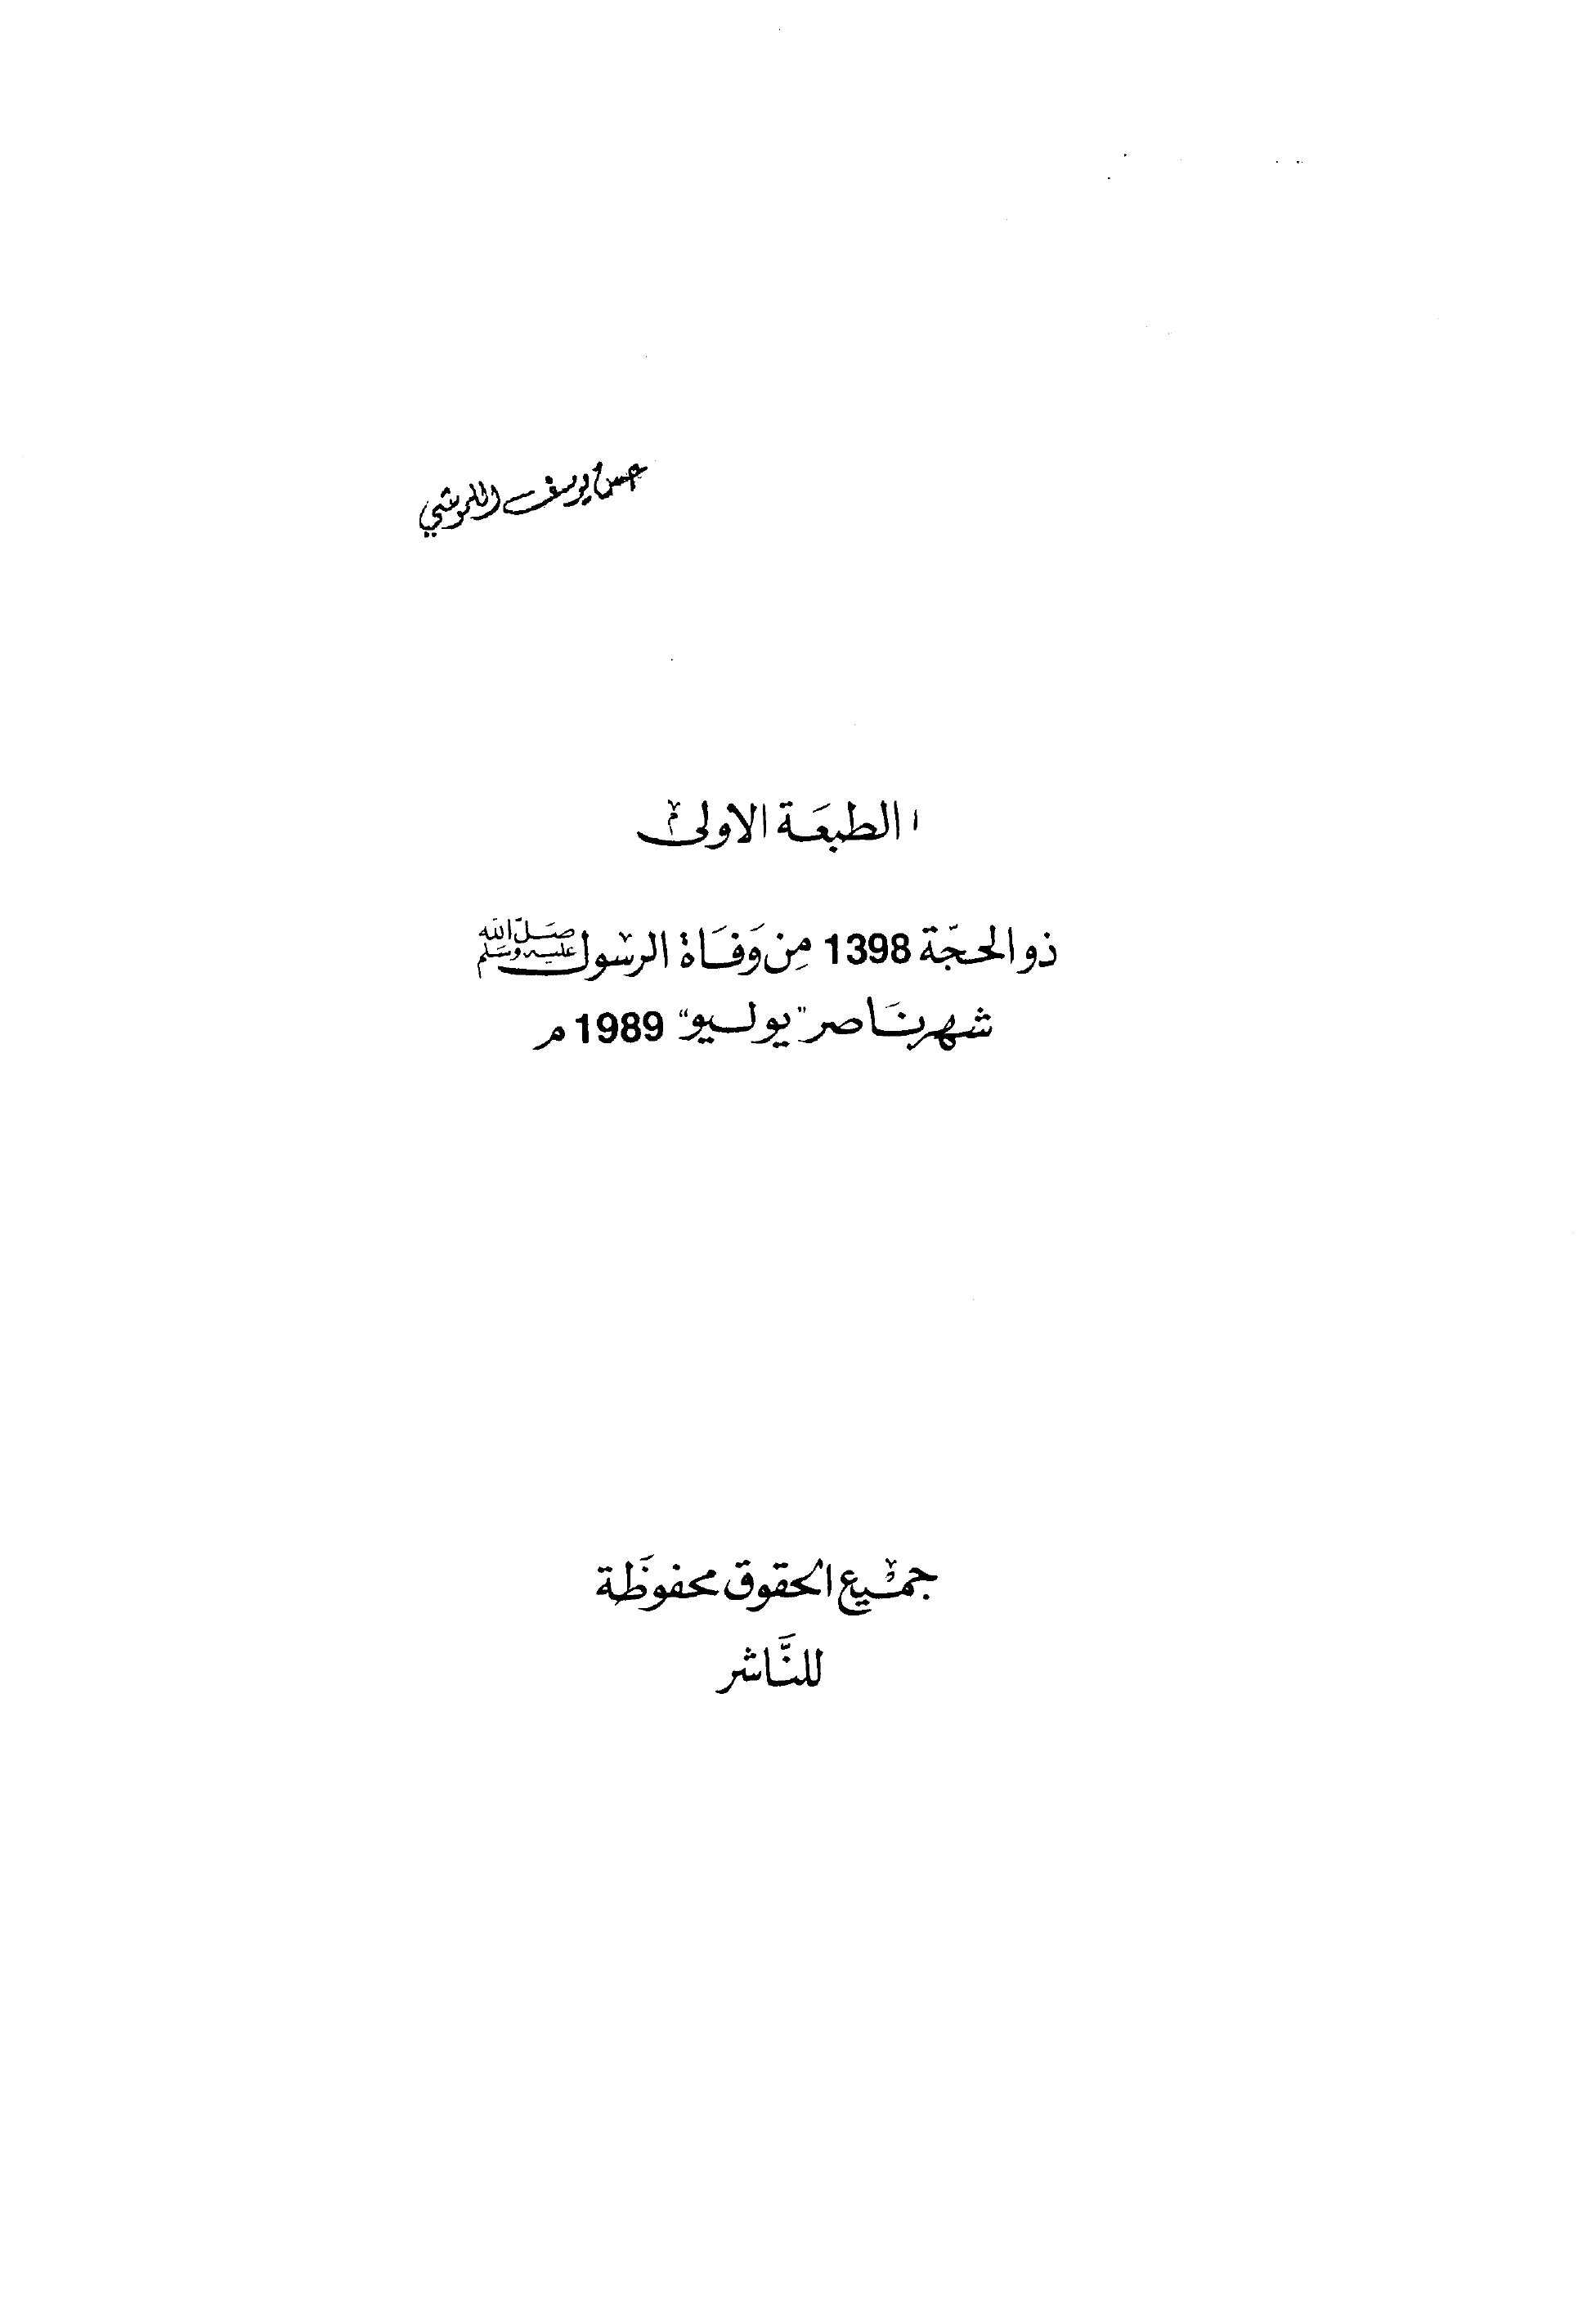 حسن يوسف
الطبعَة الاولىٰ
ذو الحجّة 1398 مِن وَفَاة الرسول صَلّى الله عليه وسَلم
شهر نَاصر "يوليو" 1989 م
جميع الحقوق محفوظَة
للنَّاشر